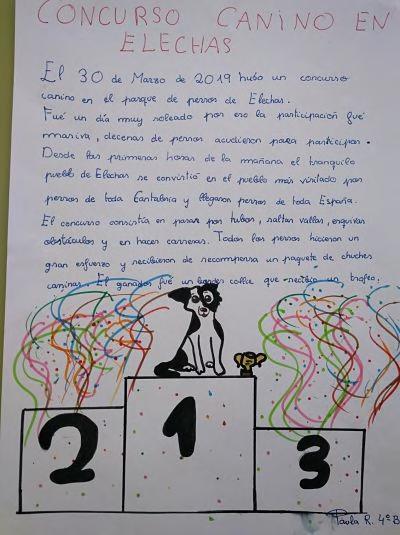 CONCURSO CANINO EN
ELECHAS
El 30 de Marzo de 2019 hubo un concurso
canino en el parque de perros de Elechas.
Fué un día muy soleado por eso la participación fué
masiva, decenas de perros acudieron para participar.
Desde las primeras horas de la mañana el tranquilo
pueblo de Elechas se convirtió en el pueblo más visitado por
perros de toda Cantabria y llegaron perros de toda España.
El concurso consistía en pasar por tubos, saltar vallas, esquivar
obstáculos y en hacer carreras. Todos los perros hicieron un
gran esfuerzo y recibieron de recompensa un paquete de chuches
caninas. El ganador fué un border collie que recibio un trofeo.
2 1 3
Paula R. 4ºB